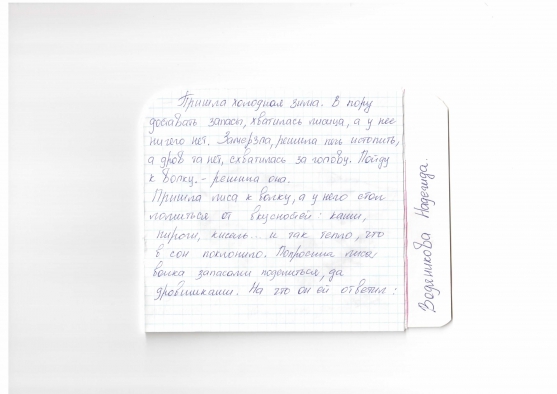 Пришла холодная зима. В пору
доставать запасы, хватилась лисица, а у нее
ничего нет. Замерзла, решила печь истопить,
а дров та нет, схватилась за голову. Пойду
к волку. - решила она.
Пришла лиса к волку, а у него стол
ломиться от вкусностей: каши,
пироги, кисель... и так тепло, что
в сон поклонило. Попросила лиса
волка запасами поделиться, да
дровишками. На что он ей ответил:
Водяникова Надежида.